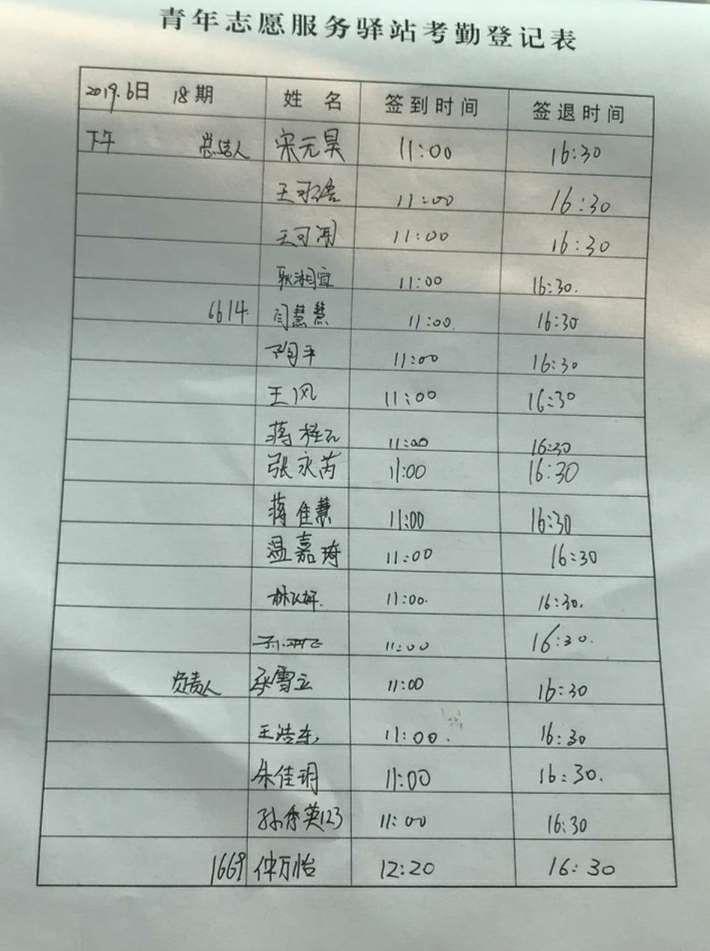 青年志愿服务驿站考勤登记表
2019.6日 18期 姓名 签到时间 签退时间
下午 总结人 宋元昊 11:00 16:30
王可 11:00 16:30
王可 11:00 16:30
耿湘宜 11:00 16:30.
6614. 闫慧慧 11:00. 16:30
陶平 11:00 16:30
王风 11:00 16:30
蒋 11:00 16:30
张永芮 11:00 16:30
蒋佳慧 11:00 16:30
温嘉琦 11:00 16:30
林 11:00. 16:30.
11:00 16:30.
负责人 张雪立 11:00 16:30
王浩东 11:00. 16:30
朱佳玥 11:00 16:30.
孙秀英123 11:00 16:30
1669 仲万怡 12:20 16:30